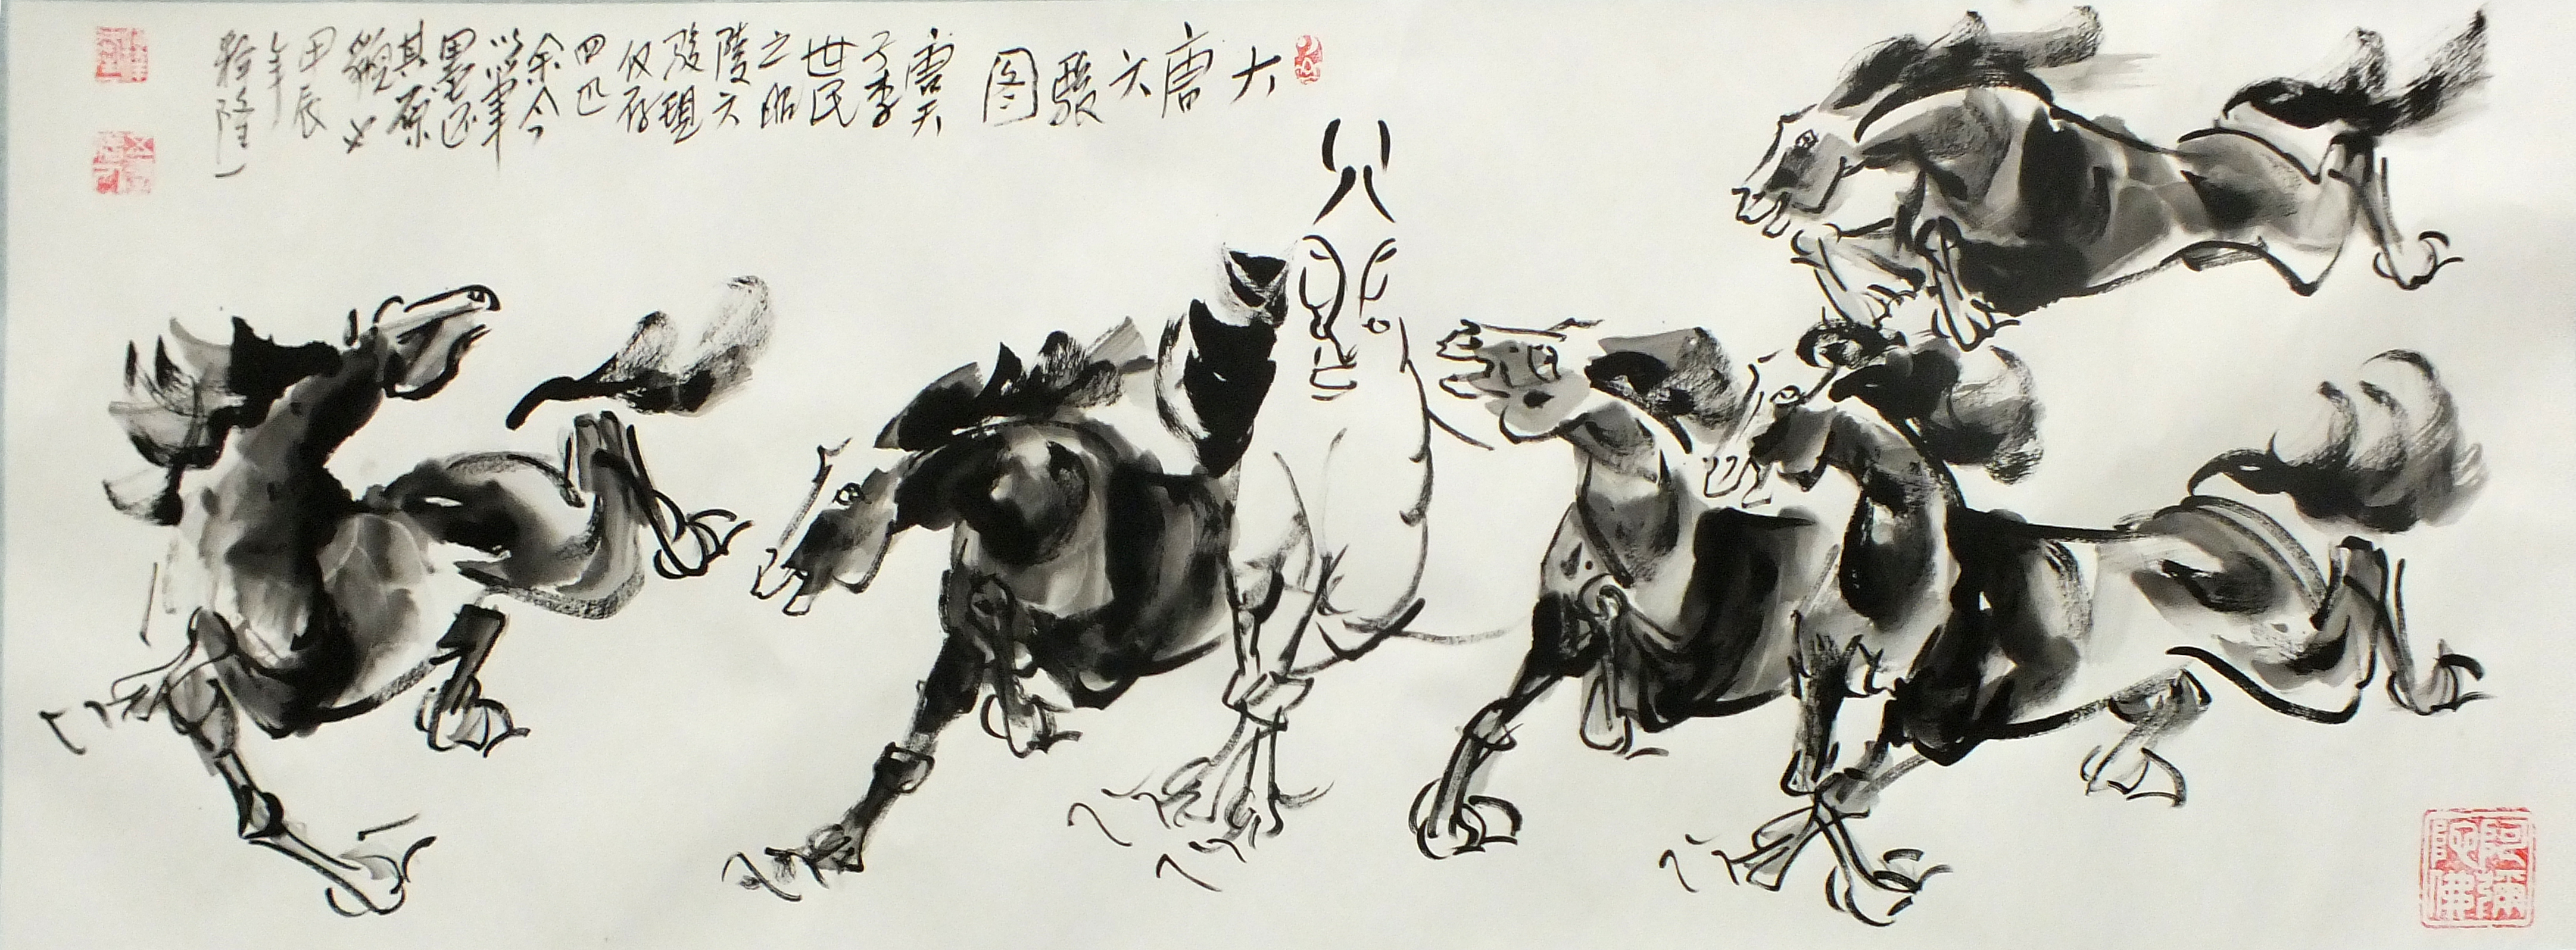 大唐六骏图
唐天
子李
世民
之昭
陵六
骏现
仅存
四匹
余今
以笔
墨还
其原
貌也
甲辰
年
阿彌
陀佛